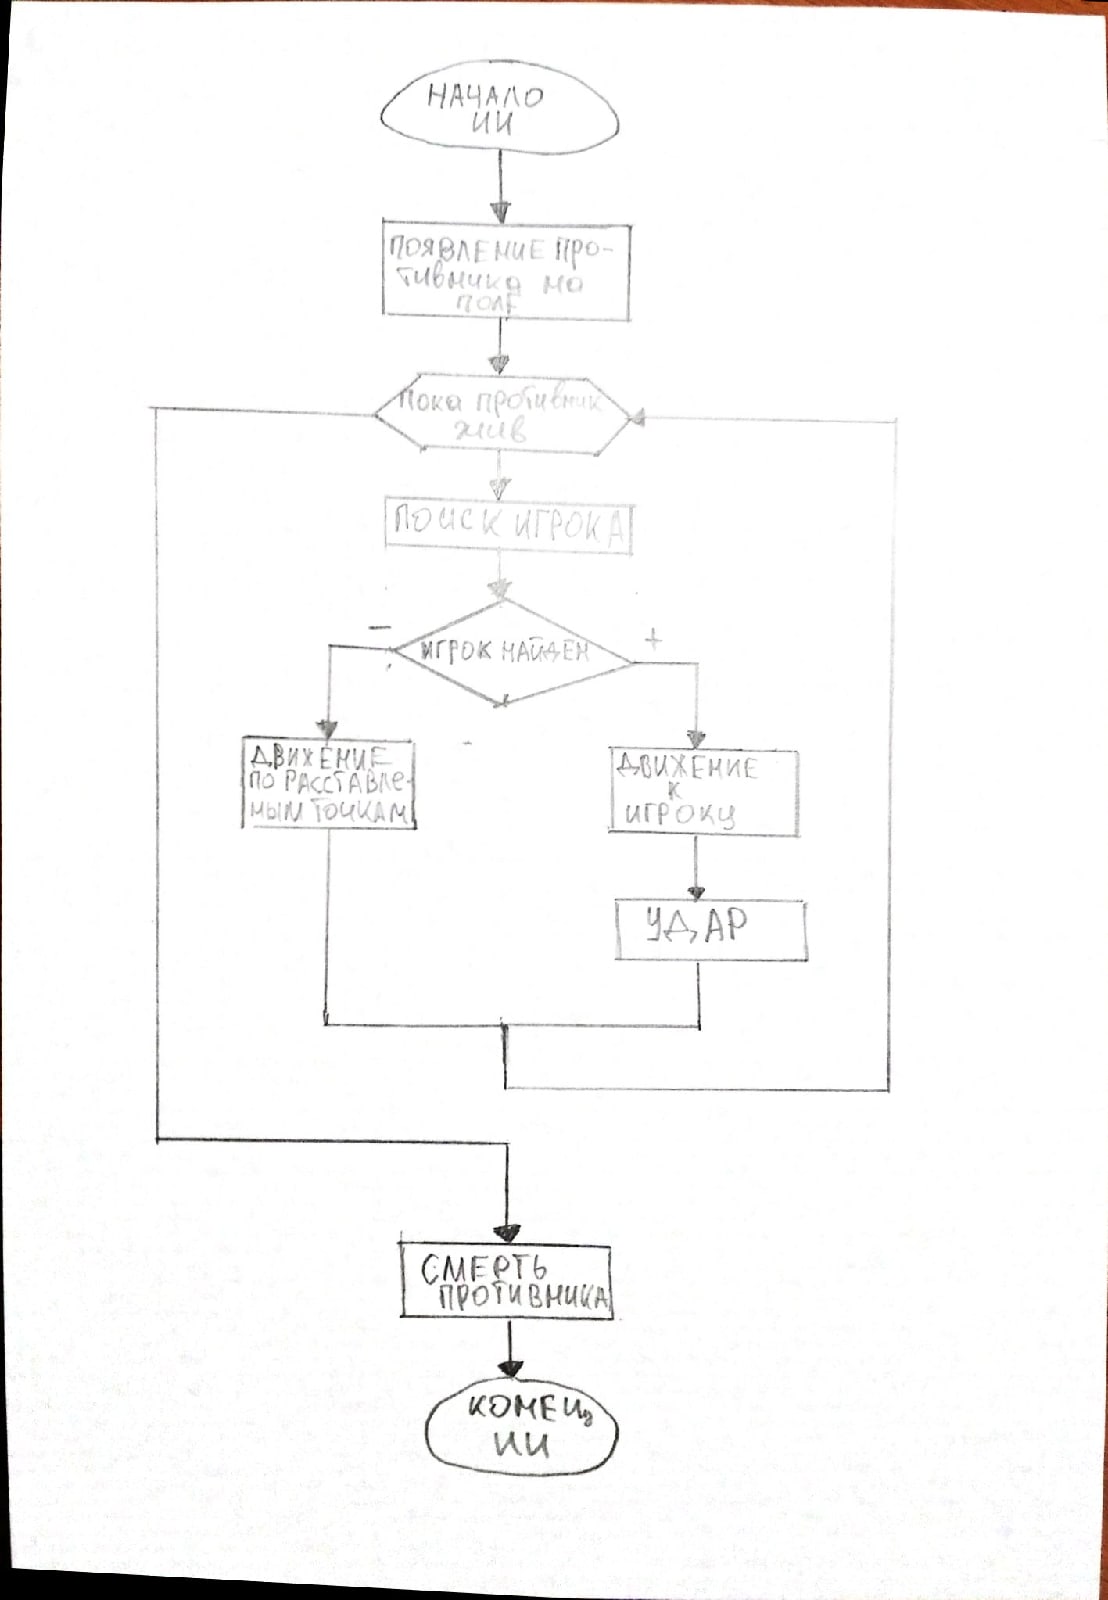 НАЧАЛО
ИИ
ПОЯВЛЕНИЕ ПРО-
ТИВНИКА НА
ПОЛЕ
Пока противник
жив
ПОИСК ИГРОКА
−
+
ИГРОК НАЙДЕН
ДВИЖЕНИЕ
ПО РАССТАВЛЕ-
НЫМ ТОЧКАМ
ДВИЖЕНИЕ
К
ИГРОКУ
УДАР
СМЕРТЬ
ПРОТИВНИКА
КОНЕЦ
ИИ